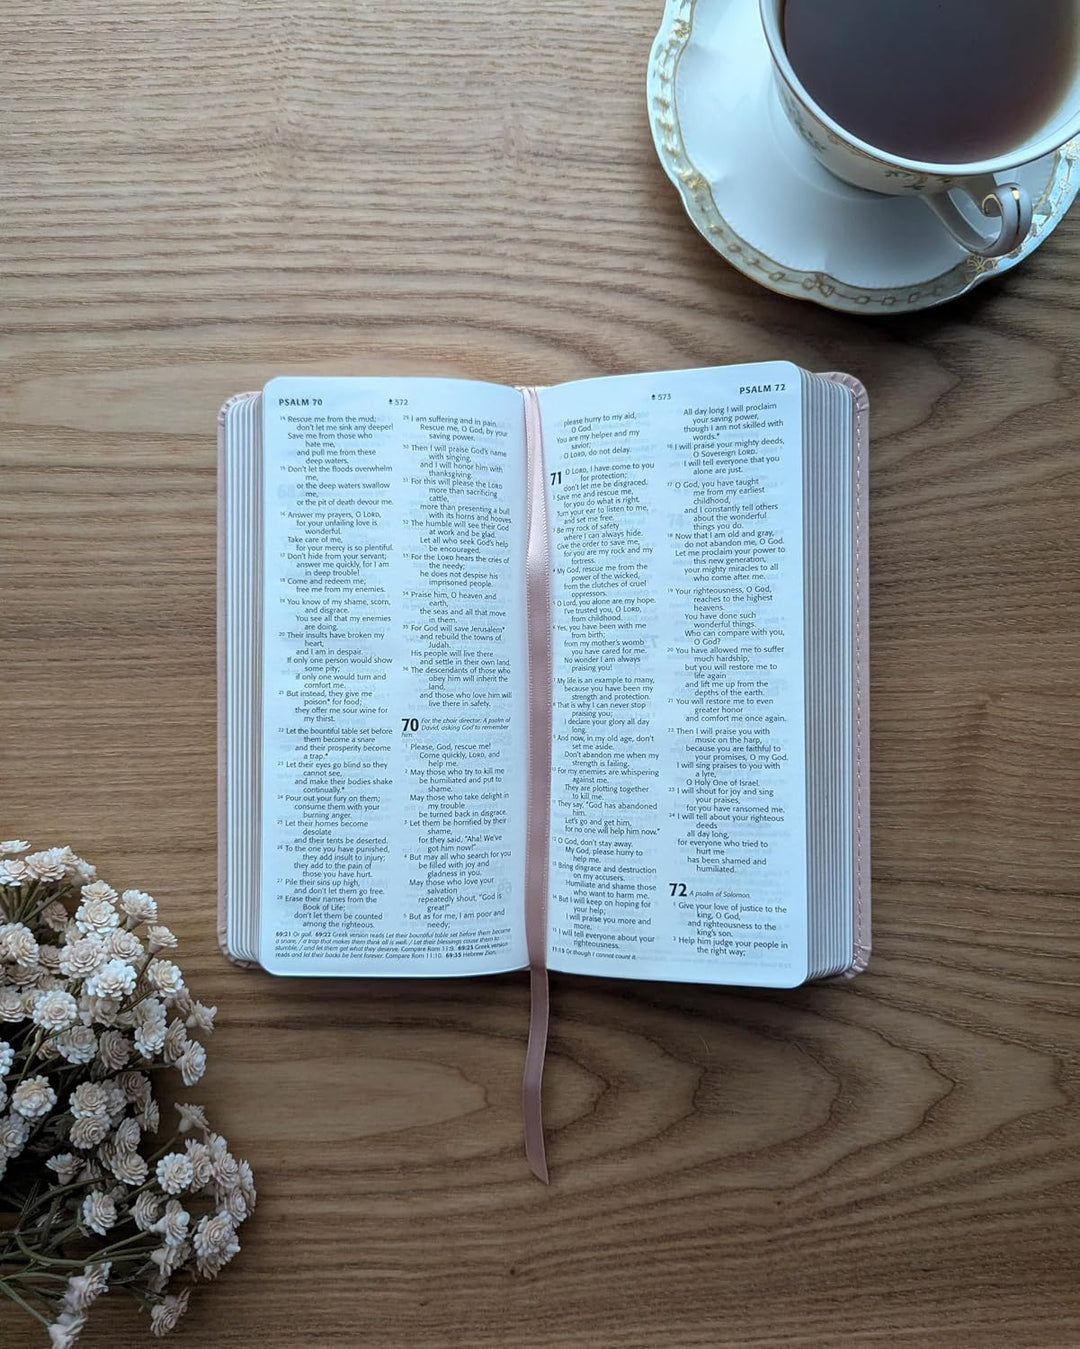 PSALM 70
572
14 Rescue me from the mud;
don't let me sink any deeper!
Save me from those who
hate me,
and pull me from these
deep waters.
15 Don't let the floods overwhelm
me,
or the deep waters swallow
me,
or the pit of death devour me.
16 Answer my prayers, O LORD,
for your unfailing love is
wonderful.
Take care of me,
for your mercy is so plentiful.
17 Don't hide from your servant;
answer me quickly, for I am
in deep trouble!
18 Come and redeem me;
free me from my enemies.
19 You know of my shame, scorn,
and disgrace.
You see all that my enemies
are doing.
20 Their insults have broken my
heart,
and I am in despair.
If only one person would show
some pity;
if only one would turn and
comfort me.
21 But instead, they give me
poison* for food;
they offer me sour wine for
my thirst.
22 Let the bountiful table set before
them become a snare
and their prosperity become
a trap.*
23 Let their eyes go blind so they
cannot see,
and make their bodies shake
continually.*
24 Pour out your fury on them;
consume them with your
burning anger.
25 Let their homes become
desolate
and their tents be deserted.
26 To the one you have punished,
they add insult to injury;
they add to the pain of
those you have hurt.
27 Pile their sins up high,
and don't let them go free.
28 Erase their names from the
Book of Life;
don't let them be counted
among the righteous.
29 I am suffering and in pain.
Rescue me, O God, by your
saving power.
30 Then I will praise God's name
with singing,
and I will honor him with
thanksgiving.
31 For this will please the LORD
more than sacrificing
cattle,
more than presenting a bull
with its horns and hooves.
32 The humble will see their God
at work and be glad.
Let all who seek God's help
be encouraged.
33 For the LORD hears the cries of
the needy;
he does not despise his
imprisoned people.
34 Praise him, O heaven and
earth,
the seas and all that move
in them.
35 For God will save Jerusalem*
and rebuild the towns of
Judah.
His people will live there
and settle in their own land.
36 The descendants of those who
obey him will inherit the
land,
and those who love him will
live there in safety.
70 For the choir director: A psalm of
David, asking God to remember
him.
1 Please, God, rescue me!
Come quickly, LORD, and
help me.
2 May those who try to kill me
be humiliated and put to
shame.
May those who take delight in
my trouble
be turned back in disgrace.
3 Let them be horrified by their
shame,
for they said, "Aha! We've
got him now!"
4 But may all who search for you
be filled with joy and
gladness in you.
May those who love your
salvation
repeatedly shout, "God is
great!"
5 But as for me, I am poor and
needy;
69:21 Or gall. 69:22 Greek version reads Let their bountiful table set before them become
a snare, / a trap that makes them think all is well. / Let their blessings cause them to
stumble, / and let them get what they deserve. Compare Rom 11:9. 69:23 Greek version
reads and let their backs be bent forever. Compare Rom 11:10. 69:35 Hebrew Zion.
573
PSALM 72
please hurry to my aid,
O God.
You are my helper and my
savior;
O LORD, do not delay.
71 O LORD, I have come to you
for protection;
don't let me be disgraced.
2 Save me and rescue me,
for you do what is right.
Turn your ear to listen to me,
and set me free.
3 Be my rock of safety
where I can always hide.
Give the order to save me,
for you are my rock and my
fortress.
4 My God, rescue me from the
power of the wicked,
from the clutches of cruel
oppressors.
5 O Lord, you alone are my hope.
I've trusted you, O LORD,
from childhood.
6 Yes, you have been with me
from birth;
from my mother's womb
you have cared for me.
No wonder I am always
praising you!
7 My life is an example to many,
because you have been my
strength and protection.
8 That is why I can never stop
praising you;
I declare your glory all day
long.
9 And now, in my old age, don't
set me aside.
Don't abandon me when my
strength is failing.
10 For my enemies are whispering
against me.
They are plotting together
to kill me.
11 They say, "God has abandoned
him.
Let's go and get him,
for no one will help him now."
12 O God, don't stay away.
My God, please hurry to
help me.
13 Bring disgrace and destruction
on my accusers.
Humiliate and shame those
who want to harm me.
14 But I will keep on hoping for
your help;
I will praise you more and
more.
15 I will tell everyone about your
righteousness.
71:15 Or though I cannot count it.
All day long I will proclaim
your saving power,
though I am not skilled with
words.*
16 I will praise your mighty deeds,
O Sovereign LORD.
I will tell everyone that you
alone are just.
17 O God, you have taught
me from my earliest
childhood,
and I constantly tell others
about the wonderful
things you do.
18 Now that I am old and gray,
do not abandon me, O God.
Let me proclaim your power to
this new generation,
your mighty miracles to all
who come after me.
19 Your righteousness, O God,
reaches to the highest
heavens.
You have done such
wonderful things.
Who can compare with you,
O God?
20 You have allowed me to suffer
much hardship,
but you will restore me to
life again
and lift me up from the
depths of the earth.
21 You will restore me to even
greater honor
and comfort me once again.
22 Then I will praise you with
music on the harp,
because you are faithful to
your promises, O my God.
I will sing praises to you with
a lyre,
O Holy One of Israel.
23 I will shout for joy and sing
your praises,
for you have ransomed me.
24 I will tell about your righteous
deeds
all day long,
for everyone who tried to
hurt me
has been shamed and
humiliated.
72 A psalm of Solomon.
1 Give your love of justice to the
king, O God,
and righteousness to the
king's son.
2 Help him judge your people in
the right way;